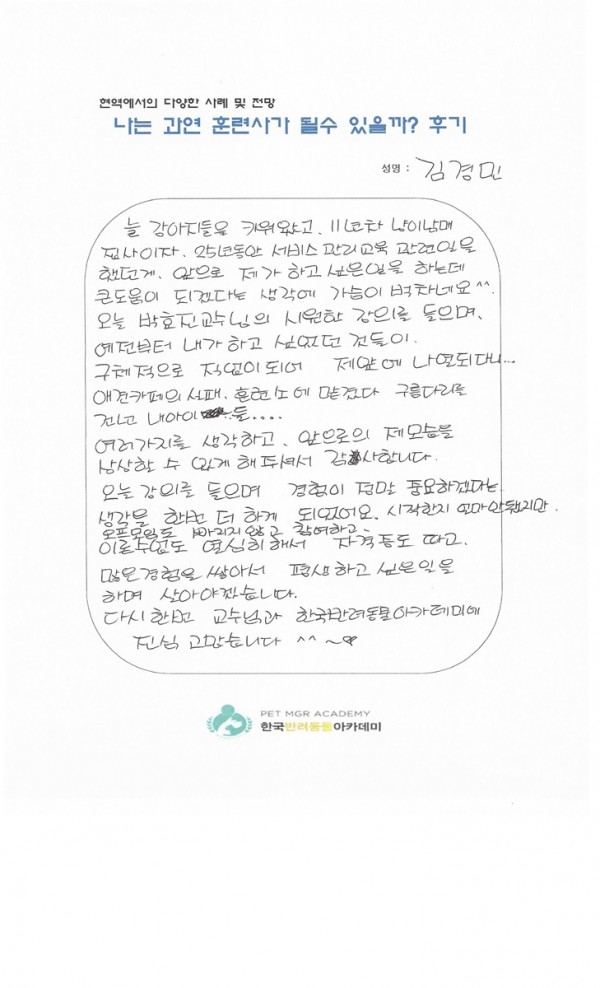 현역에서의 다양한 사례 및 전망
나는 과연 훈련사가 될수 있을까? 후기
성명 : 김경민
늘 강아지들을 키워왔고, 11년차 냥이남매
집사이자, 25년동안 서비스 관리교육 관련일을
했던게, 앞으로 제가 하고 싶은일을 하는데
큰도움이 되겠다는 생각에 가슴이 벅차네요^^.
오늘 박효진교수님의 시원한 강의를 들으며,
예전부터 내가 하고 싶었던 것들이.
구체적으로 직업이되어 제앞에 나열되다니...
애견카페의 실패, 훈련소에 맡겼다 구름다리를
건너 내아이들....
여러가지를 생각하고, 앞으로의 제모습을
상상할 수 있게 해주셔서 감사합니다.
오늘 강의를 들으며 경험이 정말 중요하겠다는
생각을 한번 더 하게 되었어요. 시작한지 얼마안됐지만.
오프모임도 빠지지 않고 참여하고,
이론수업도 열심히해서 자격증도 따고.
많은경험을 쌓아서 평생하고 싶은일을
하며 살아야겠습니다.
다시한번 교수님과 한국반려동물아카데미에
진심 고맙습니다 ^^ ~♡
PET MGR ACADEMY
한국반려동물아카데미